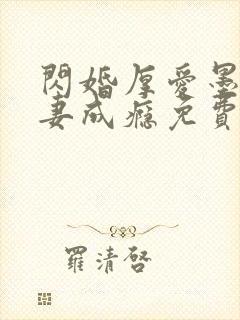 閃婚厚愛墨
妻成癮免費
羅清啓